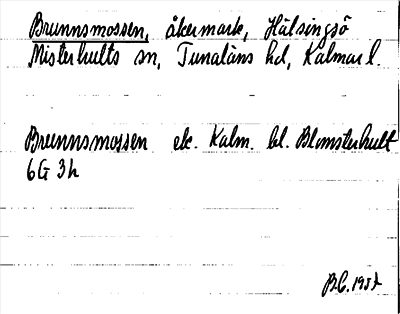 Brunnsmossen, åkermark, Hälsingsö
Misterhults sn, Tunaläns hd, Kalmar l.
Brunnsmossen ek. Kalm. bl. Blomsterhult
6G 3h
B.C. 1957